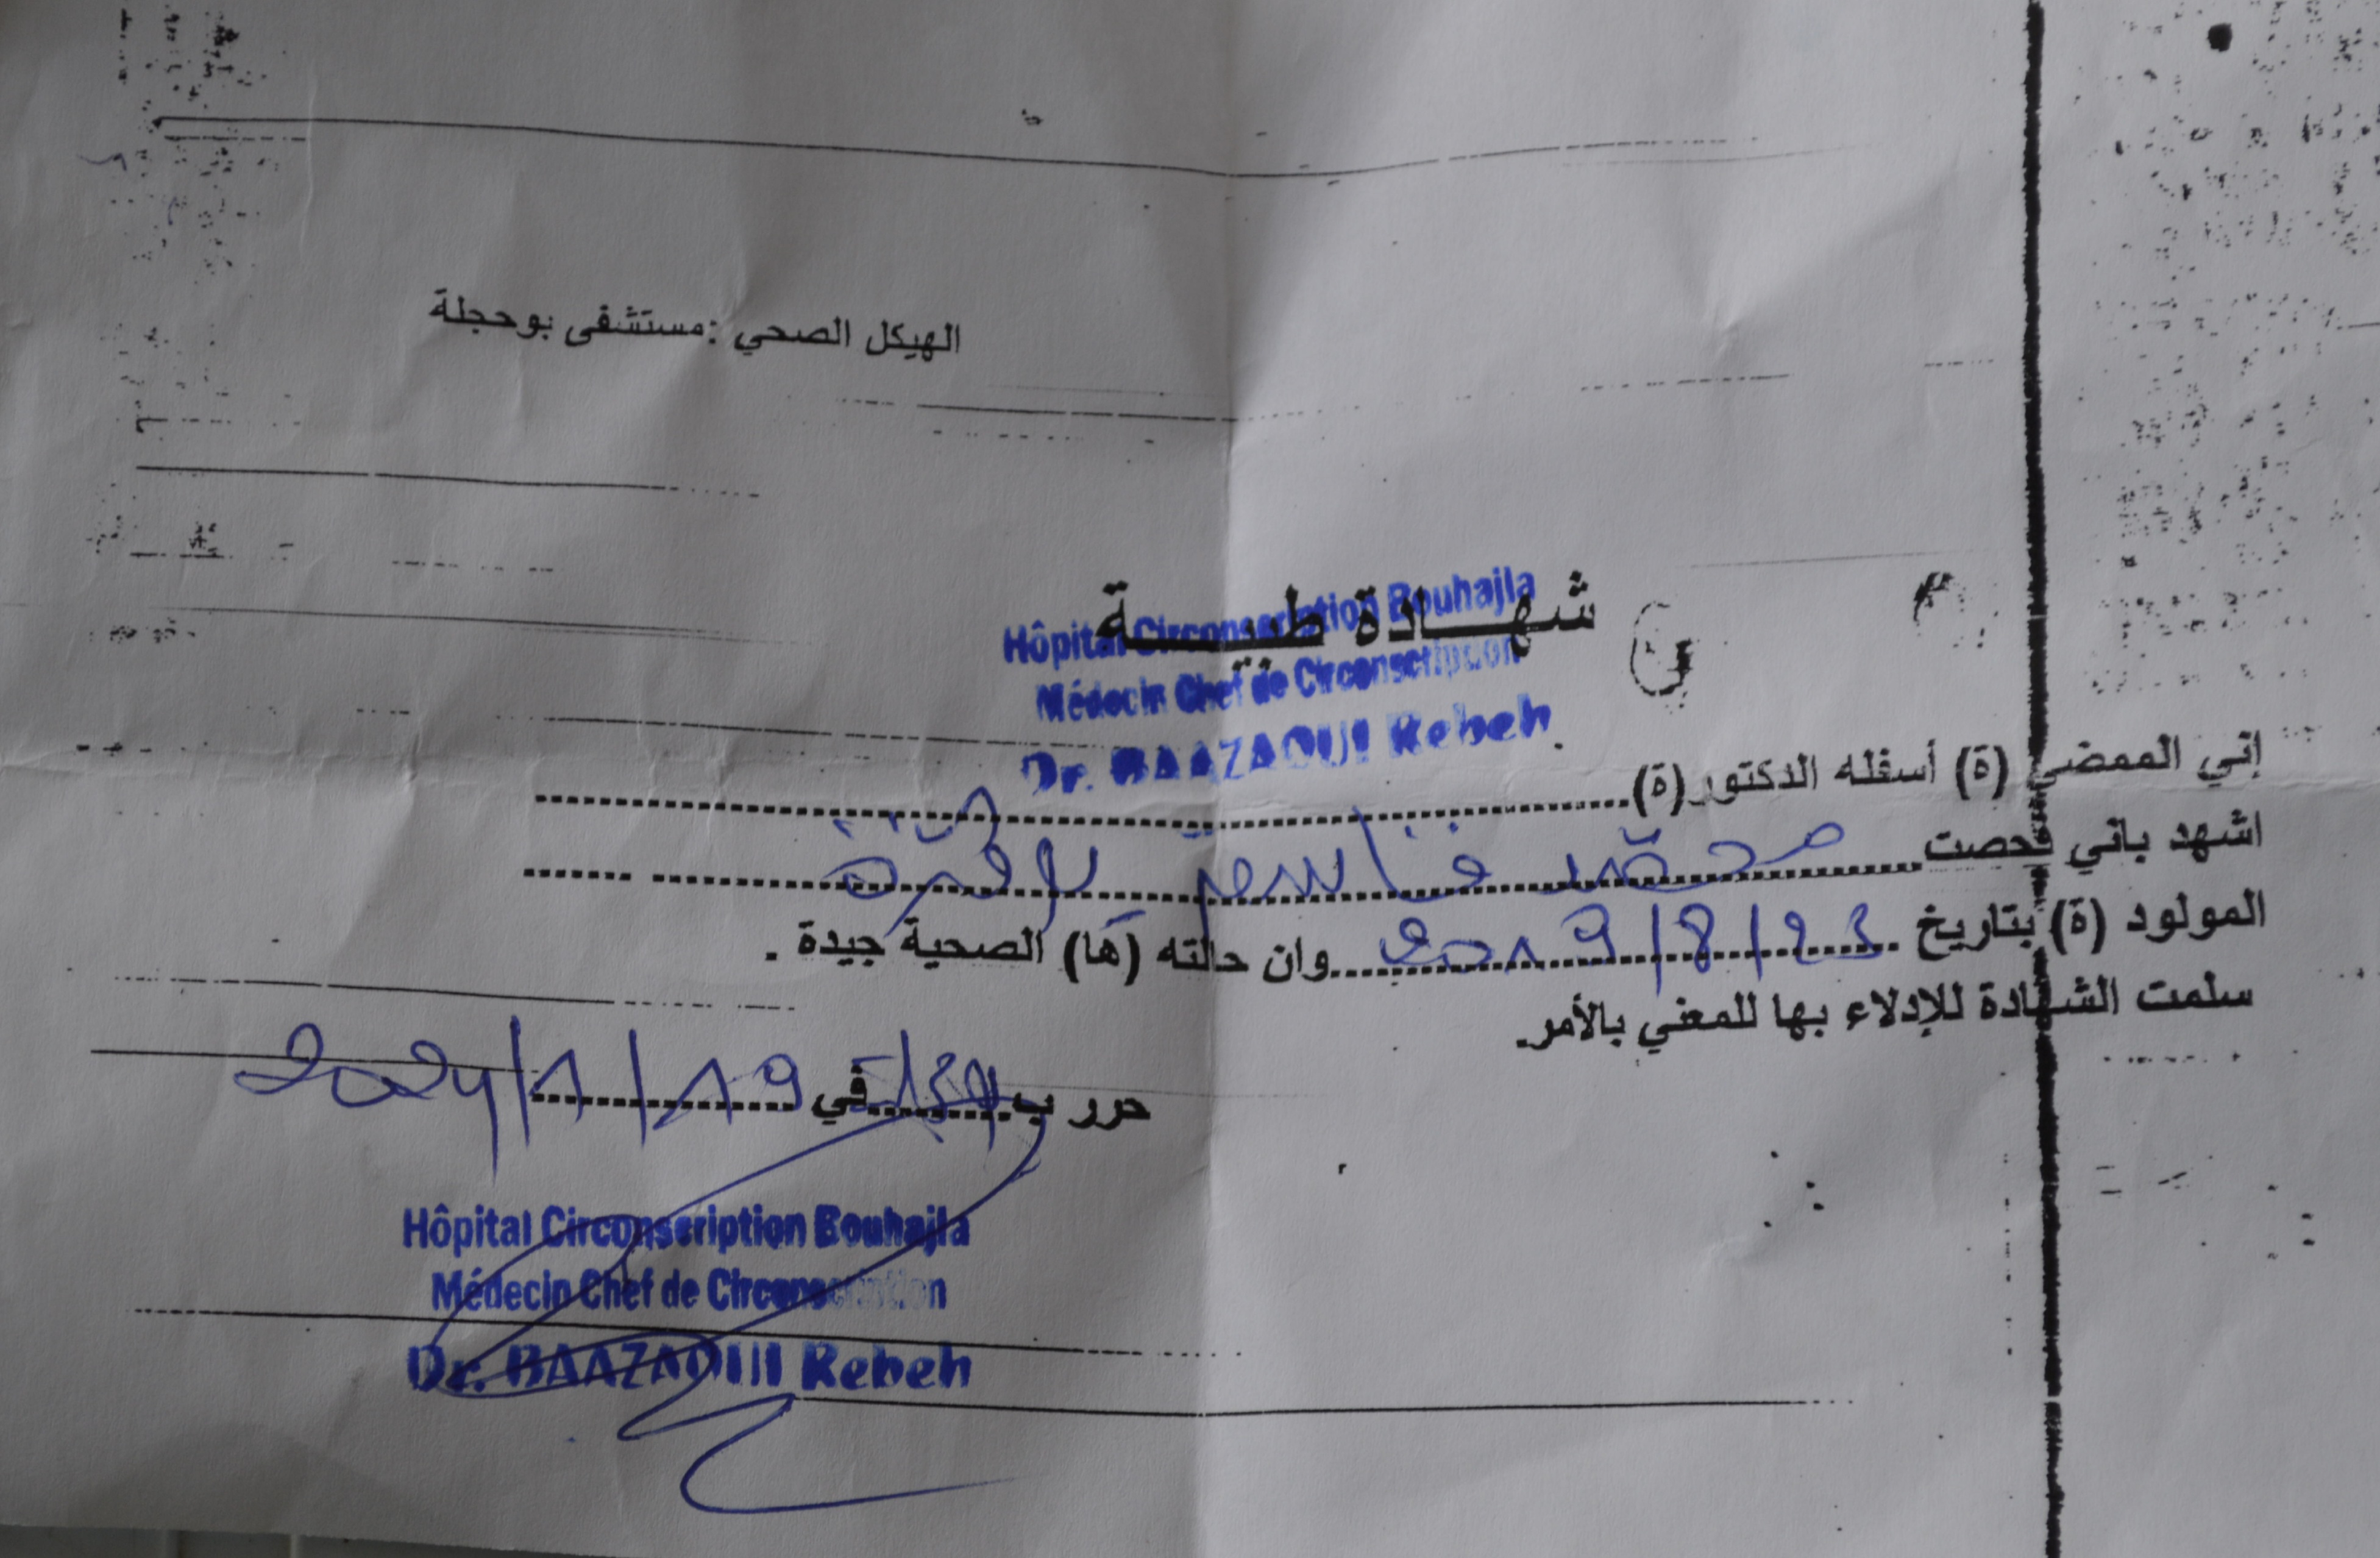 الهيكل الصحي :مستشفى بوحجلة
شهـــادة طبيـــة
Hôpital Circonscription Bouhajla
Médecin Chef de Circonscription
Dr. BAAZAOUI Rebeh
إني الممضي (ة) أسفله الدكتور(ة)
اشهد باني فحصت محمد قاسم
المولود (ة) بتاريخ 2019/8/23 وان حالته (ها) الصحية جيدة .
سلمت الشهادة للإدلاء بها للمعني بالأمر.
حرر ب في 2024/1/19
Hôpital Circonscription Bouhajla
Médecin Chef de Circonscription
Dr. BAAZAOUI Rebeh